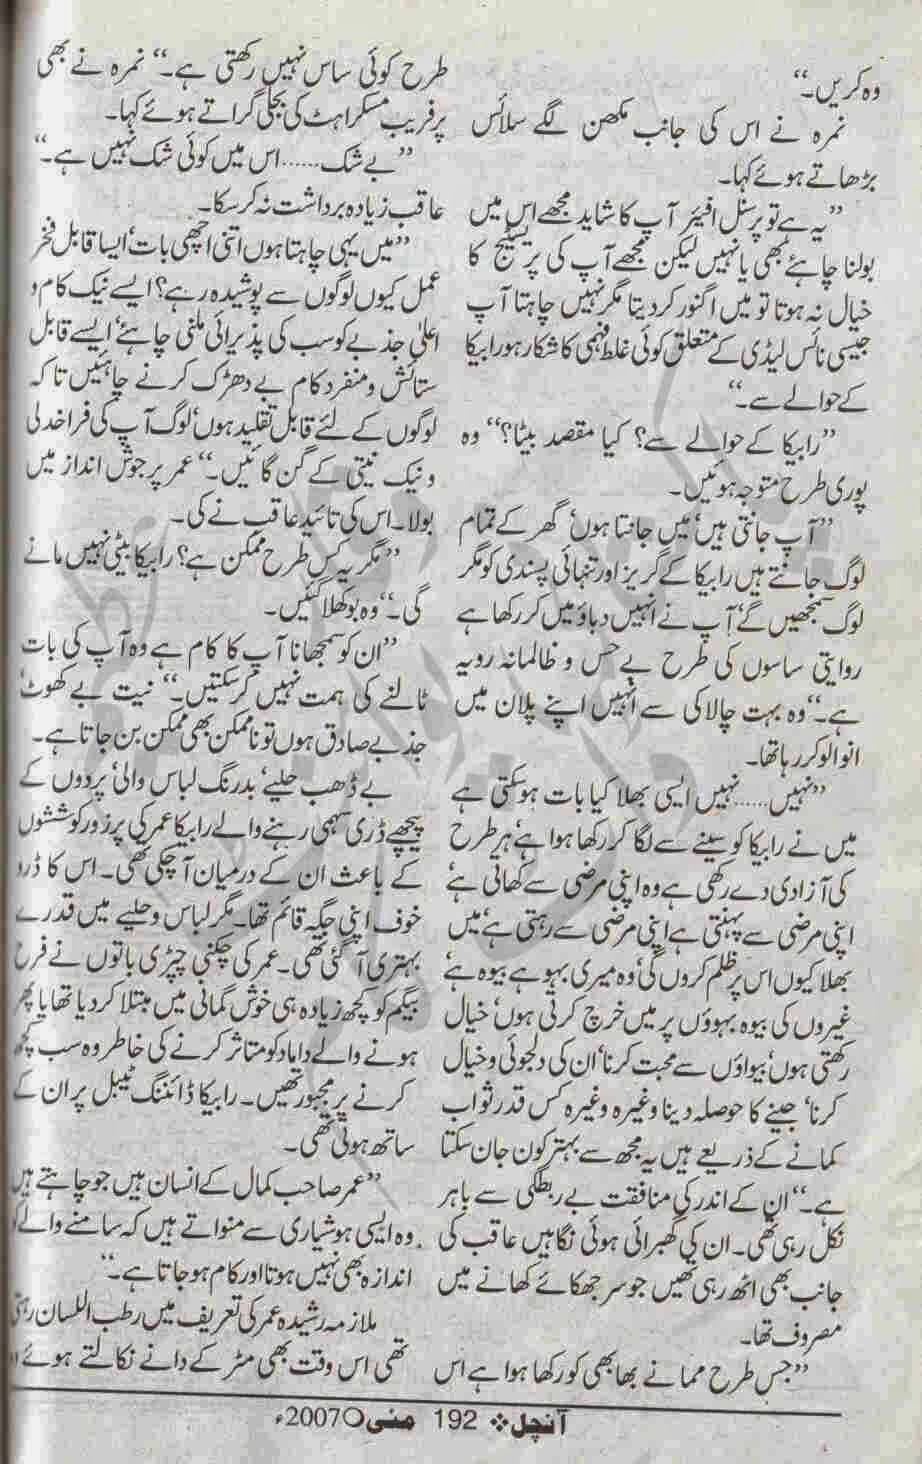 وہ کریں۔“
نمرہ نے اس کی جانب مکھن لگے سلائس
بڑھاتے ہوئے کہا۔
”یہ ہے تو پرسنل افیئر آپ کا شاید مجھے اس میں
بولنا چاہئے بھی یا نہیں لیکن مجھے آپ کی پریسٹیج کا
خیال نہ ہوتا تو میں اگنور کر دیتا مگر نہیں چاہتا آپ
جیسی نائس لیڈی کے متعلق کوئی غلط فہمی کا شکار ہو رابیکا
کے حوالے سے۔“
”رابیکا کے حوالے سے؟ کیا مقصد بیٹا؟“ وہ
پوری طرح متوجہ ہوئیں۔
”آپ جانتی ہیں‘ میں جانتا ہوں‘ گھر کے تمام
لوگ جانتے ہیں رابیکا کے گریز اور تنہائی پسندی کو مگر
لوگ سمجھیں گے‘ آپ نے انہیں دباؤ میں کر رکھا ہے
روایتی ساسوں کی طرح بے حس و ظالمانہ رویہ
ہے۔“ وہ بہت چالاکی سے انہیں اپنے پلان میں
انوالو کر رہا تھا۔
”نہیں.....نہیں ایسی بھلا کیا بات ہو سکتی ہے
میں نے رابیکا کو سینے سے لگا کر رکھا ہوا ہے‘ ہر طرح
کی آزادی دے رکھی ہے وہ اپنی مرضی سے کھاتی ہے‘
اپنی مرضی سے پہنتی ہے اپنی مرضی سے رہتی ہے‘ میں
بھلا کیوں اس پر ظلم کروں گی‘ وہ میری بہو ہے بیوہ ہے‘
غیروں کی بیوہ بہوؤں پر میں خرچ کرتی ہوں‘ خیال
رکھتی ہوں‘ بیواؤں سے محبت کرنا‘ ان کی دلجوئی و خیال
کرنا‘ جینے کا حوصلہ دینا وغیرہ وغیرہ کس قدر ثواب
کمانے کے ذریعے ہیں یہ مجھ سے بہتر کون جان سکتا
ہے۔“ ان کے اندر کی منافقت بے ربطگی سے باہر
نکل رہی تھی۔ ان کی گھبرائی ہوئی نگاہیں عاقب کی
جانب بھی اٹھ رہی تھیں جو سر جھکائے کھانے میں
مصروف تھا۔
”جس طرح ممانے بھابھی کو رکھا ہوا ہے اس
طرح کوئی ساس نہیں رکھتی ہے۔“ نمرہ نے بھی
پر فریب مسکراہٹ کی بجلی گراتے ہوئے کہا۔
”بے شک......اس میں کوئی شک نہیں ہے۔“
عاقب زیادہ برداشت نہ کر سکا۔
”میں یہی چاہتا ہوں اتنی اچھی بات‘ ایسا قابل فخر
عمل کیوں لوگوں سے پوشیدہ رہے؟ ایسے نیک کام و
اعلیٰ جذبے کو سب کی پذیرائی ملنی چاہئے‘ ایسے قابل
ستائش و منفرد کام بے دھڑک کرنے چاہئیں تاکہ
لوگوں کے لئے قابل تقلید ہوں‘ لوگ آپ کی فراخدلی
و نیک نیتی کے گن گائیں۔“ عمر پر جوش انداز میں
بولا۔ اس کی تائید عاقب نے کی۔
”مگر یہ کس طرح ممکن ہے؟ رابیکا بیٹی نہیں مانے
گی۔“ وہ بوکھلا گئیں۔
”ان کو سمجھانا آپ کا کام ہے وہ آپ کی بات
ٹالنے کی ہمت نہیں کر سکتیں۔“ نیت بے کھوٹ‘
جذبے صادق ہوں تو ناممکن بھی ممکن بن جاتا ہے۔
بے ڈھب حلیے‘ بدرنگ لباس والی‘ پردوں کے
پیچھے ڈری سہمی رہنے والے رابیکا عمر کی پر زور کوششوں
کے باعث ان کے درمیان آ چکی تھی۔ اس کا ڈر و
خوف اپنی جگہ قائم تھا۔ مگر لباس و حلیے میں قدرے
بہتری آ گئی تھی۔ عمر کی چکنی چپڑی باتوں نے فرخ
بیگم کو کچھ زیادہ ہی خوش گمانی میں مبتلا کر دیا تھا یا پھر
ہونے والے داماد کو متاثر کرنے کی خاطر وہ سب کچھ
کرنے پر مجبور تھیں۔ رابیکا ڈائننگ ٹیبل پر ان کے
ساتھ ہوتی تھی۔
”عمر صاحب کمال کے انسان ہیں جو چاہتے ہیں
وہ ایسی ہوشیاری سے منواتے ہیں کہ سامنے والے کو
اندازہ بھی نہیں ہوتا اور کام ہو جاتا ہے۔“
ملازمہ رشیدہ عمر کی تعریف میں رطب اللسان رہتی
تھی اس وقت بھی مٹر کے دانے نکالتے ہوئے
آنچل ❖ 192 مئی ○ 2007ء